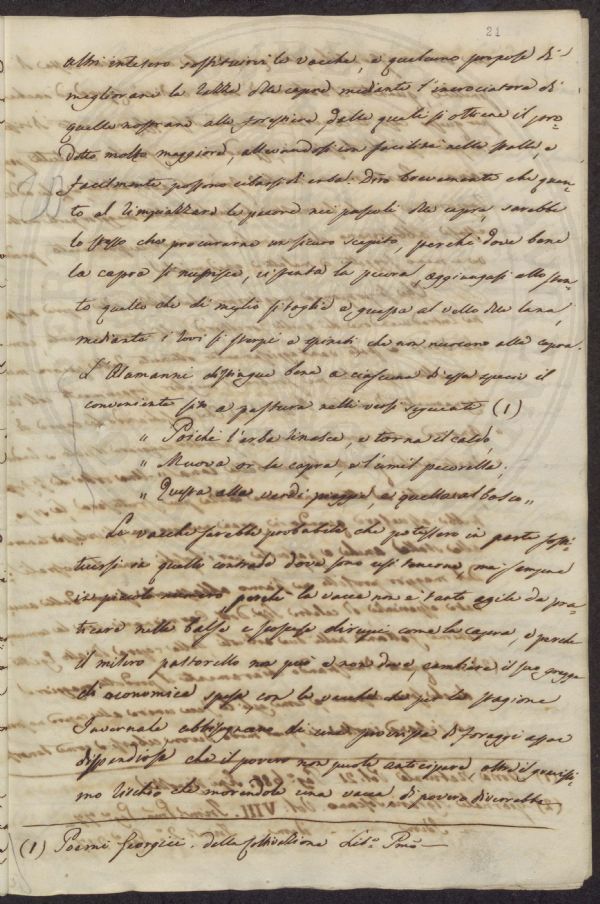 21
altri intesero sostituirvi le vacche, e qualcuno propose di
migliorare la delle capre mediante l'incrociatora di
quelle nostrane alle forestiere, dalle quali si ottiene il pro-
dotto molto maggiore, allevandosi con facilità nelle stalle, e
facilmente possono cibarsi di erba. Dirò brevemente che quan-
to al rimpiazzare le pecore nei pascoli delle capre, sarebbe
lo stesso che procurarne un sicuro scapito, perché dove bene
la capra si nutrisce, vi stenta la pecora, aggiungasi allo sten-
to quello che di meglio si toglie e guasta al vello della lana,
mediante i rovi li sterpi e spineti che non nuocono alla capra.
L'Alamanni distingue bene a ciascuna di esse specie il
conveniente sito a pastura nelli versi seguenti (1)
„ Poiché l'erba rinasce, e torna il caldo,
„ Muova or la capra, e l'umil pecorella;
„ Questa alla verdi piagge, e quella al bosco „
Le vacche sarebbe probabile che potessero in parte sosti-
tuirsi in quelle contrade dove sono usi tenerne, mai sempre
in piccolo numero perché la vacca non è tanto agile da pra-
ticare nelle balse e scoscese dirupi come la capra, e perché
il misero pastorello non può e non deve, cambiare il suo gregge
di economica spesa con le vacche che per la stagione
Invernale abbisognano di una provvista di foraggi assai
dispendiosa che il povero non puote anticipare oltre il gravissi-
mo rischio che morendole una vacca di povero diverrebbe
(1) Poemi Georgici. della Coltivazione Lib.° Pmo